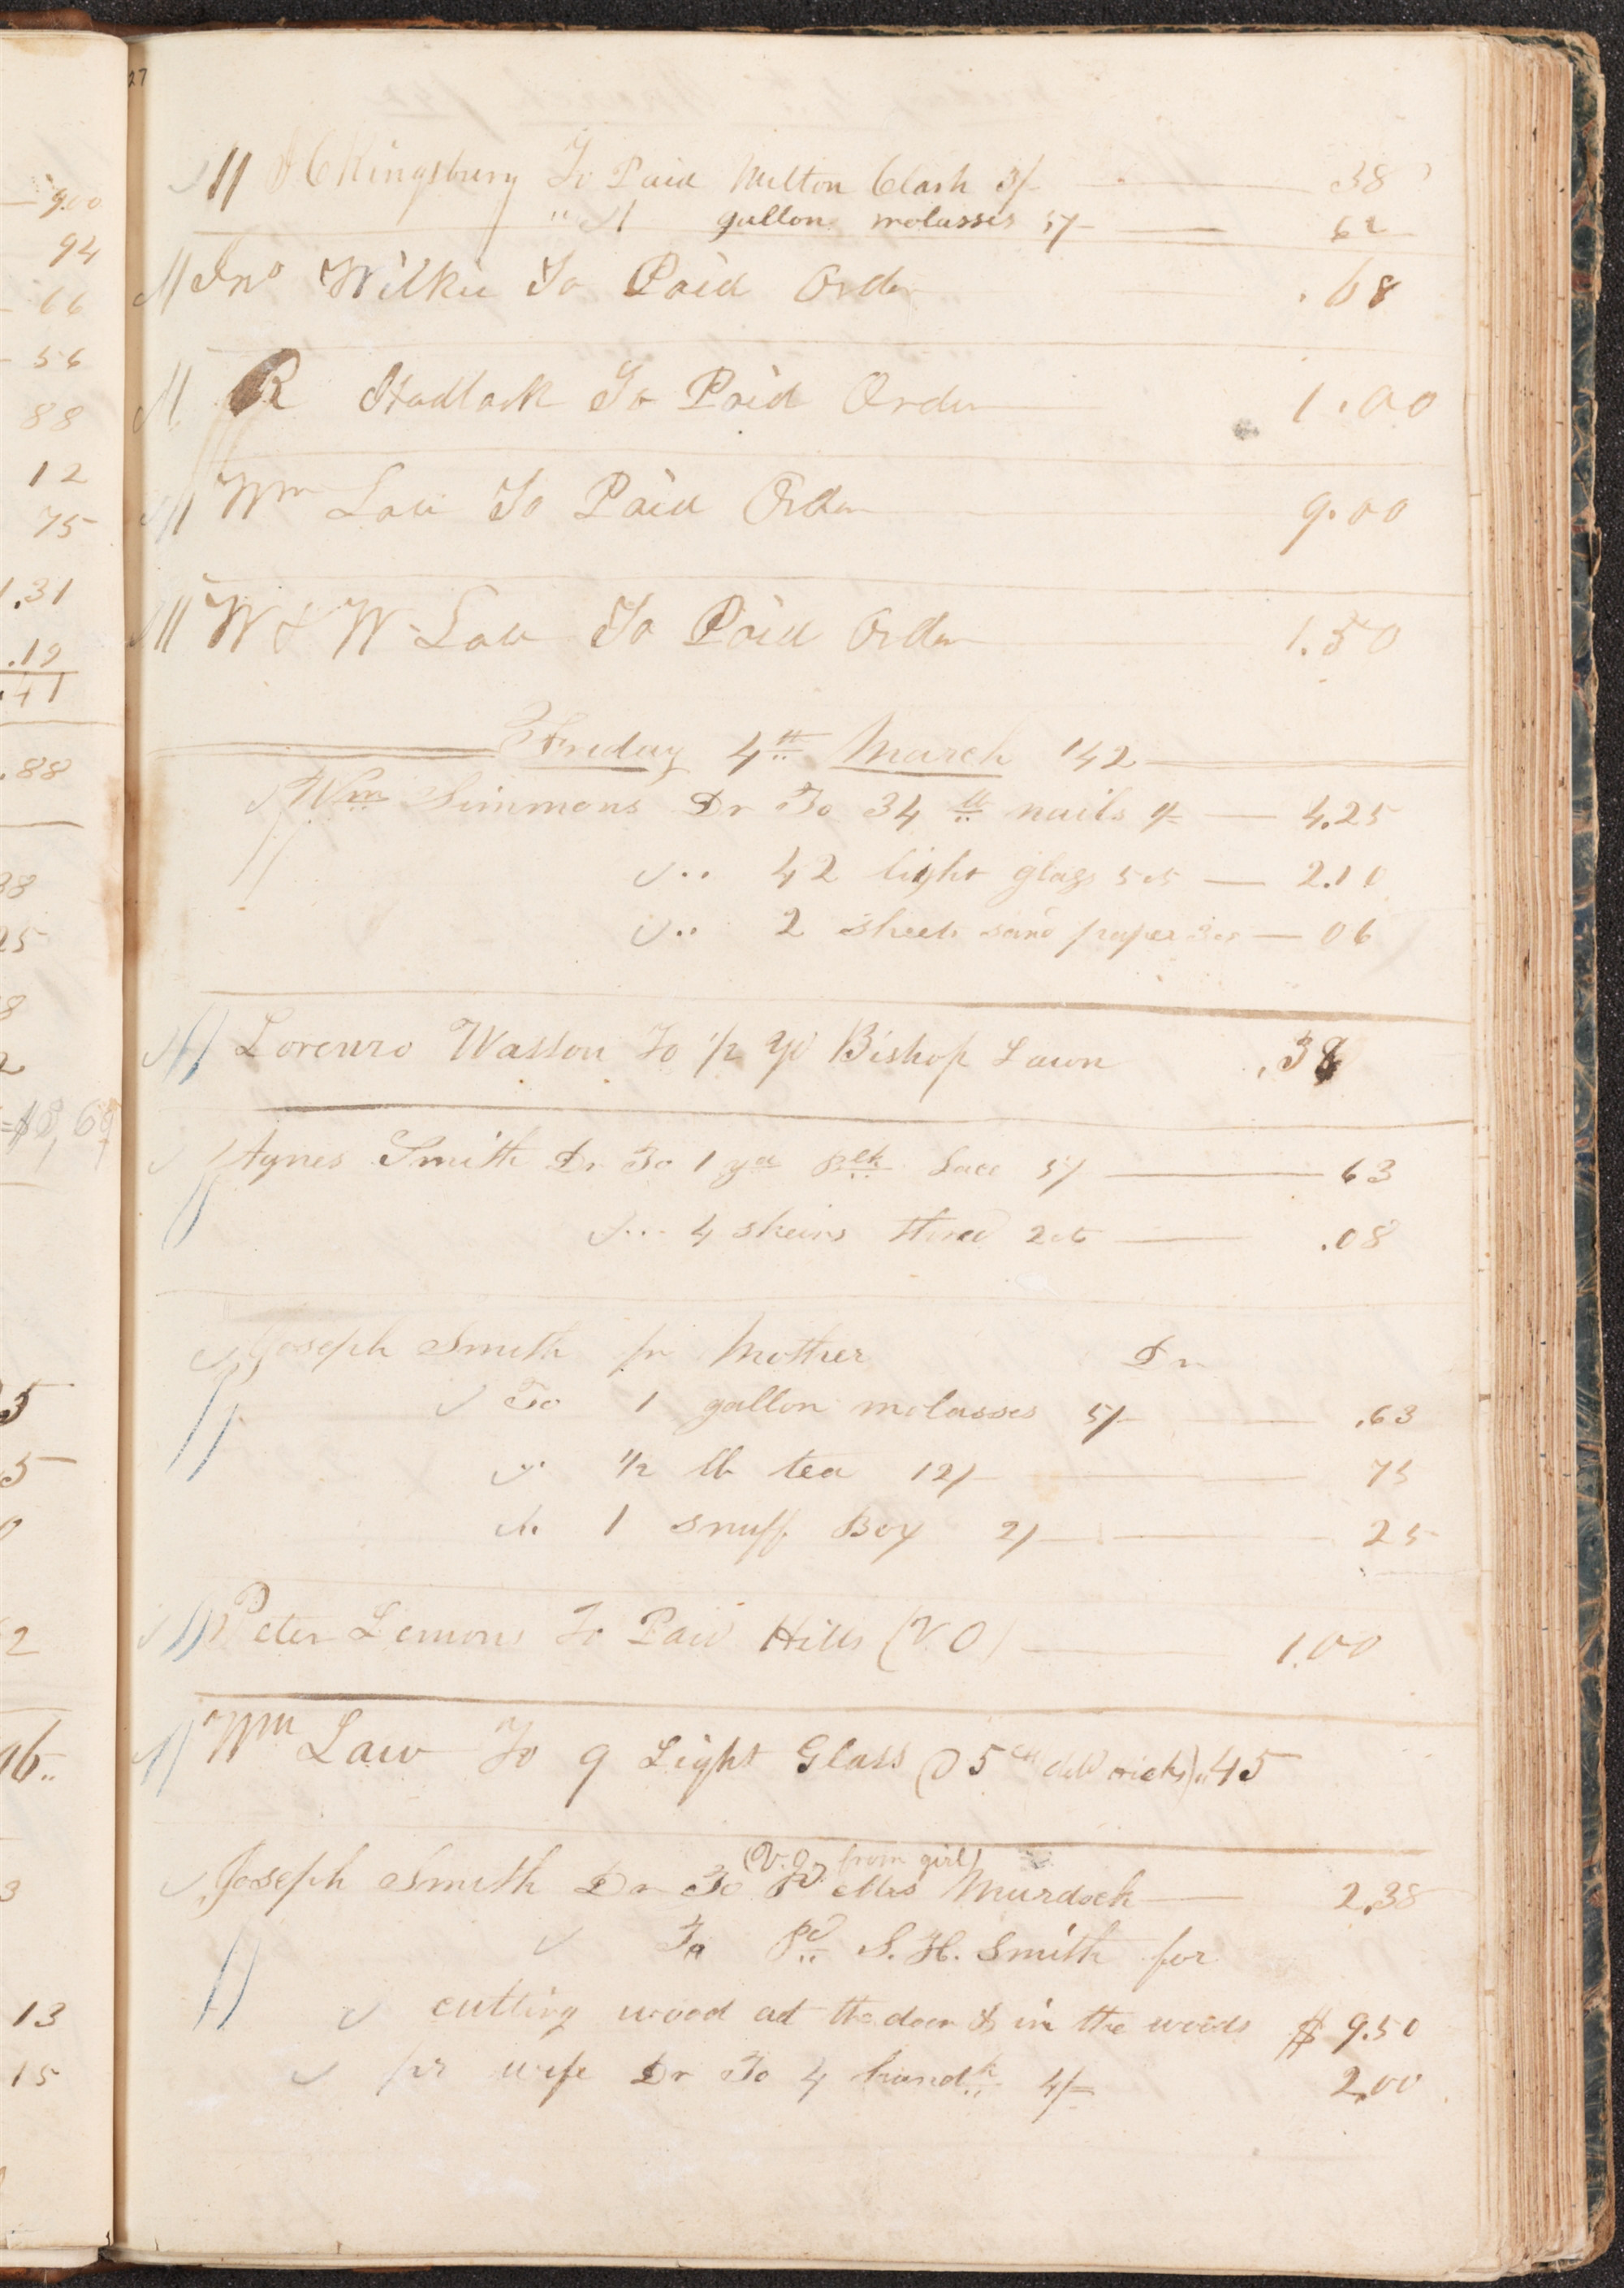 27
9.00
94
66
56
88
12
75
1.31
.19
.41
.88
38
25
8
2
=$8,69
5
5
0
2
96..
3
13
15
H C Kingsbury To Paid Milton Clark 3/- 38
" 1 gallon molasses 5/- 62
Jno Wilkie To Paid Order .68
R Hadlock To Paid Order 1.00
Wm Law To Paid Order 9.00
W & W Law To Paid Order 1.50
Friday 4th March '42
Wm Simmons Dr To 34 lb nails 1/- 4.25
.. 42 light glass 5cts 2.10
.. 2 sheets sand paper 3cts 06
Lorenzo Wasson To 1/2 yd Bishop Lawn .38
Agnes Smith Dr To 1 yd Blk Lace 5/ 63
... 4 skeins thred 2cts .08
Joseph Smith pr Mother Dr
To 1 gallon molasses 5/- .63
.. 1/2 lb tea 12/- 75
.. 1 snuff Box 2/- 25
Peter Lemons To Paid Hills (V.O) 1.00
Wm Law To 9 Light Glass (@ 5 cts deld ricks) ..45
(V.O. from girl)
Joseph Smith Dr To Pd Mrs Murdock 2.38
To Pd S. H. Smith for
cutting wood at the door & in the woods $ 9.50
pr wife Dr To 4 handk 4/- 2.00